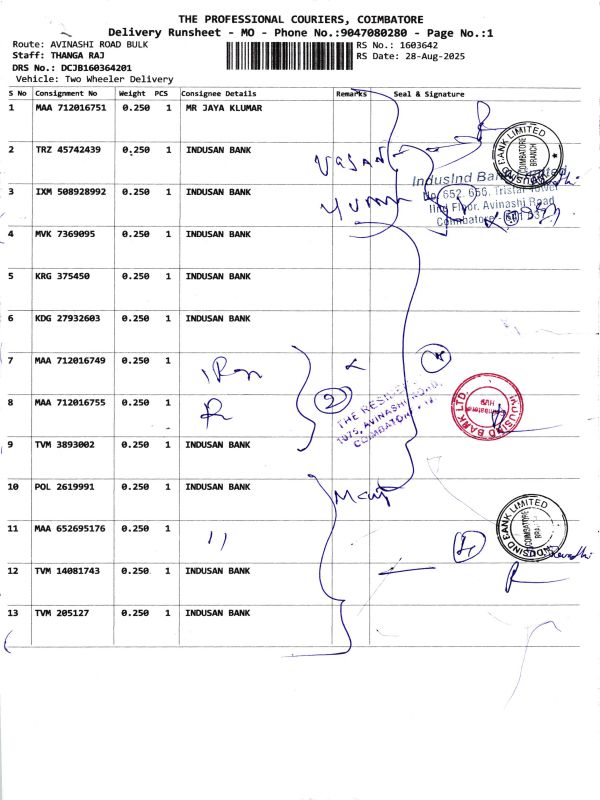 THE PROFESSIONAL COURIERS, COIMBATORE
Delivery Runsheet - MO - Phone No.:9047080280 - Page No.:1
Route: AVINASHI ROAD BULK
Staff: THANGA RAJ
DRS No.: DCJB160364201
Vehicle: Two Wheeler Delivery
RS No.: 1603642
RS Date: 28-Aug-2025
S No Consignment No Weight PCS Consignee Details Remarks Seal & Signature
1 MAA 712016751 0.250 1 MR JAYA KLUMAR
2 TRZ 45742439 0.250 1 INDUSAN BANK
3 IXM 508928992 0.250 1 INDUSAN BANK
IndusInd Bank Limited
No. 652, 656, Tristar Tower
IInd Floor, Avinashi Road
Coimbatore - 641 037
BANK LIMITED
COIMBATORE BRANCH
4 MVK 7369095 0.250 1 INDUSAN BANK
5 KRG 375450 0.250 1 INDUSAN BANK
6 KDG 27932603 0.250 1 INDUSAN BANK
7 MAA 712016749 0.250 1
8 MAA 712016755 0.250 1
2
1075, AVINASHI ROAD,
INDUSIND BANK LTD.
9 TVM 3893002 0.250 1 INDUSAN BANK
10 POL 2619991 0.250 1 INDUSAN BANK
11 MAA 652695176 0.250 1
INDUSIND BANK LIMITED
COIMBATORE BRANCH
12 TVM 14081743 0.250 1 INDUSAN BANK
13 TVM 205127 0.250 1 INDUSAN BANK